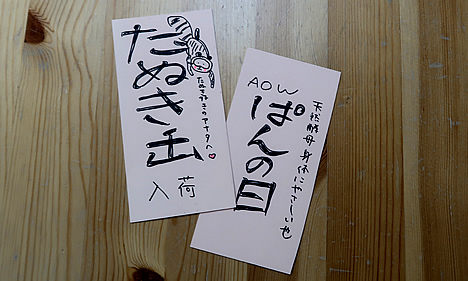 たぬき缶
たぬき好きのアナタへ♡
入荷
AOW
ぱんの日
天然酵母身体にやさしいや